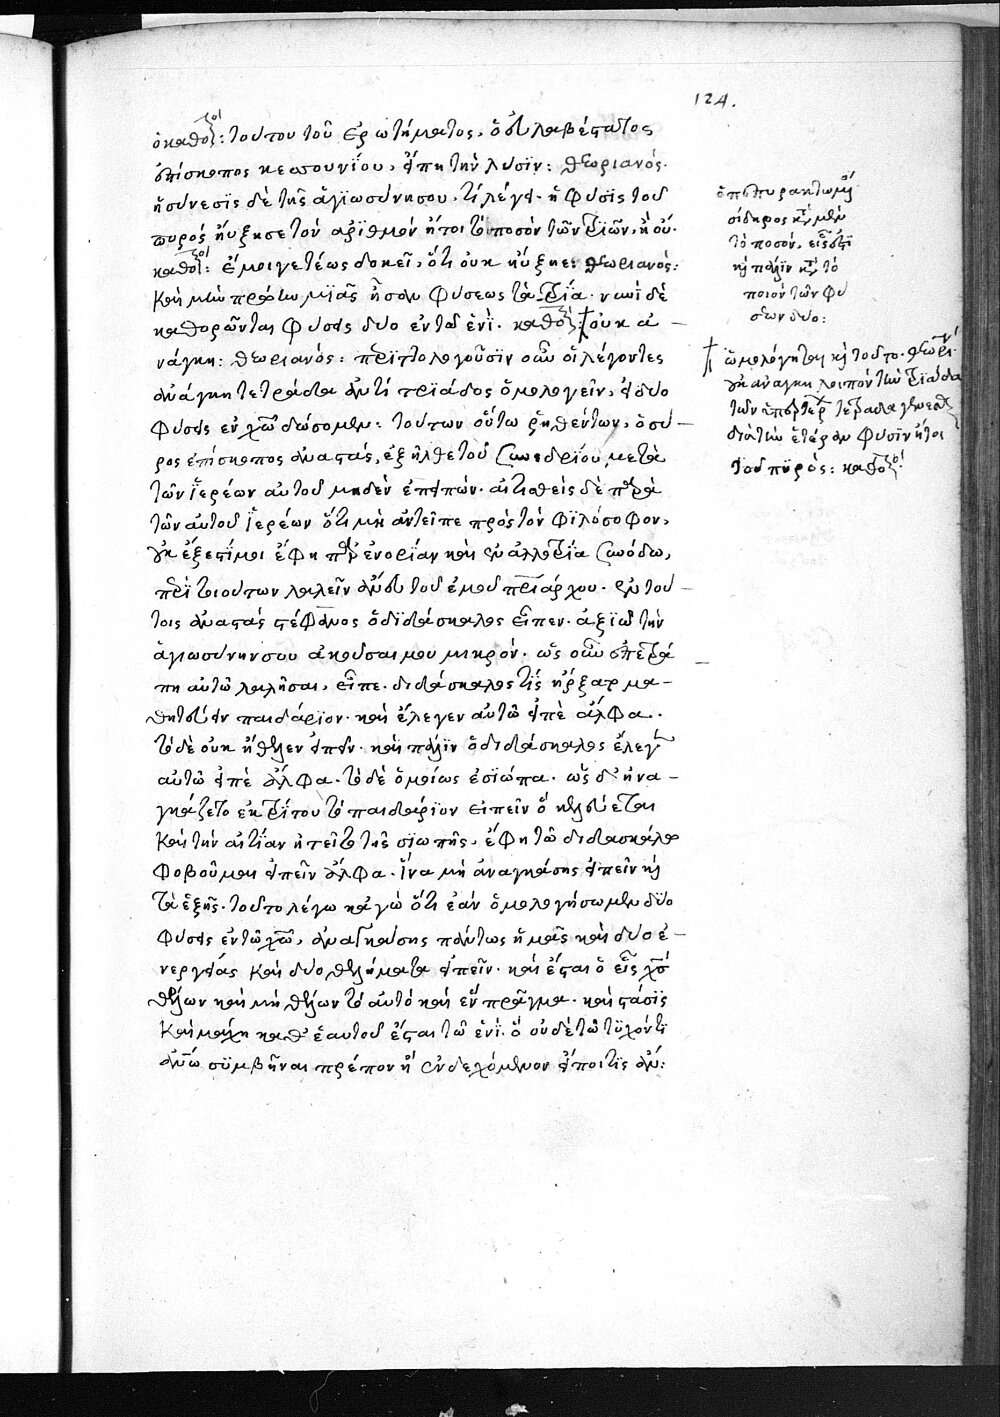 124.
ὁ καθολι: τούτου τοῦ ἐρωτήματος, ὁ εὐλαβέστατος
ἐπίσκοπος κεσουνίου, εἴπη τὴν λυσϊν: θεωριανός.
ἡ σύνεσϊς δὲ τῆς ἁγϊωσύνης σου, τί λέγει. ἡ φύσϊς τοῦ
πυρός ηὔξησε τὸν ἀρϊθμὸν ἤτοι τὸ ποσὸν τῶν τριῶν, ἢ οὔ.
καθολι: ἔμοιγε τέως δοκεῖ, ὅτι οὐκ ηὔξησε: θεωριανός:
καὶ μὴν πρώτον μϊᾶς ἦσαν φύσεως τὰ τρία. νυνῒ δὲ
καθορῶνται φύσεις δυο ἐν τῶ ἑνί. καθολι: οὐκ ἀ –
νάγκη: θεωριανός: περϊττολογοῦσϊν οὖν οἱ λέγοντες
ἀνάγκη τετράδα ἀντὶ τρϊάδος ὁμολογεῖν, εἰ δυο
φύσεις ἐν χῶ δώσομεν: τούτων οὕτω ῥηθέντων, ὁ σύ –
ρος ἐπίσκοπος ἀναστάς, ἐξῆλθε τοῦ συνεδρίου μετὰ
τῶν ἱερέων αὐτοῦ μηδὲν ἐπειπών. αἰτιαθεὶς δὲ παρὰ
τῶν αὐτοῦ ἱερέων ὅτι μὴ ἀντεῖπε πρὸς τὸν φϊλόσοφον,
οὐκ ἔξεστί μοι ἔφη παρ᾽ ἐνορίαν καὶ ἐν ἀλλοτρία συνόδω,
περὶ τοιούτων λαλεῖν ἄνευ τοῦ ἐμοῦ πριάρχου. ἐν τού –
τοις ἀναστάς στέφανος ὁ διδάσκαλος εἶπεν. ἀξιῶ τὴν
ἁγιωσύνην σου ἀκοῦσαι μου μικρόν. ὡς οὖν ἐπετρά –
πη αὐτῶ λαλῆσαι, εἶπε. διδάσκαλος τίς ἤρξατο μα –
θητεύειν παιδάρϊον. καὶ ἔλεγεν αὐτῶ εἰπὲ ἄλφα.
τὸ δὲ οὐκ ἤθελεν εἰπεῖν. καὶ πάλϊν ὁ διδάσκαλος ἔλεγεν
αὐτῶ εἰπὲ ἄλφα. τὸ δὲ ὁμοίως ἐσϊώπα. ὡς δ᾽ ἠνα –
γκάζετο ἐκ τρίτου τὸ παιδάρϊον εἰπεῖν ὃ κελεύεται
καὶ τὴν αἰτίαν ἠτεῖτο τῆς σϊωπῆς, ἔφη τῶ διδασκάλω
φοβοῦμαι εἰπεῖν ἄλφα. ἵνα μὴ ἀναγκάσης εἰπεῖν καὶ
τὰ ἑξῆς. τοῦτο λέγω καγὼ ὅτι ἐὰν ὁμολογήσωμεν δύο
φύσεις ἐν τῶ χῶ, ἀναγκάσης πάντως ἡμᾶς καὶ δυο ἐ –
νεργείας καὶ δυο θελήματα εἰπεῖν. καὶ ἔσται ὁ εἷς χς
θέλων καὶ μὴ θέλων τὸ αὐτὸ καὶ ἓν πρᾶγμα. καὶ στάσϊς
καὶ μάχη καθ᾽ ἑαυτοῦ ἔσται τῶ ἑνί. ὃ οὐδὲ τῶ τϋχόντι
ἀνω σϋμβῆναι πρέπον ἢ ἐνδεχόμενον εἴποι τϊς ἄν:
σίδηρος
τὸ ποσόν, εἷς ἐστι
καὶ πάλϊν κατὰ τὸ
ποιὸν τῶν φύ
σεων δυο:
ὡμολόγηται καὶ τοῦτο. θεωρι.
οὐκ ἀνάγκη λοιπὸν τὴν τρϊάδα
διὰ τὴν ἑτέραν φύσϊν ἤτοι
τοῦ πϋρός: καθολι